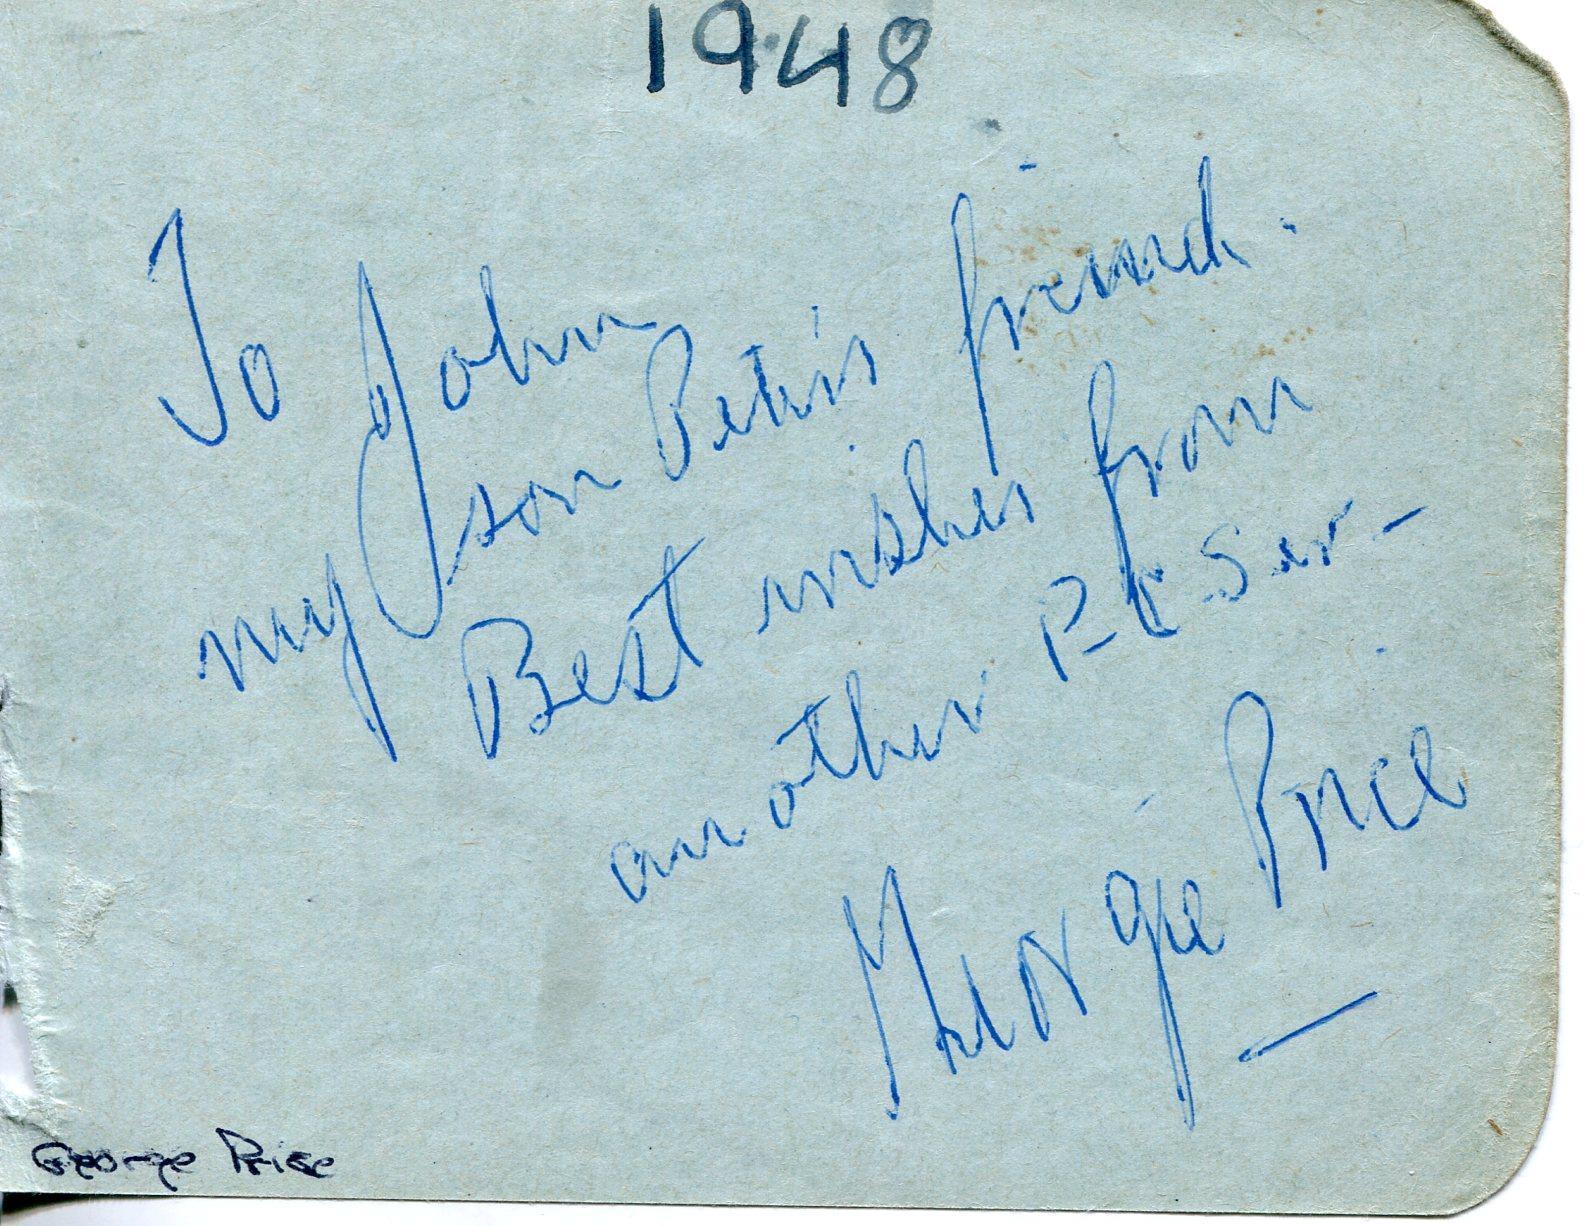 1948
To John
my son Peter's friend.
Best wishes from
another
George Price
George Price